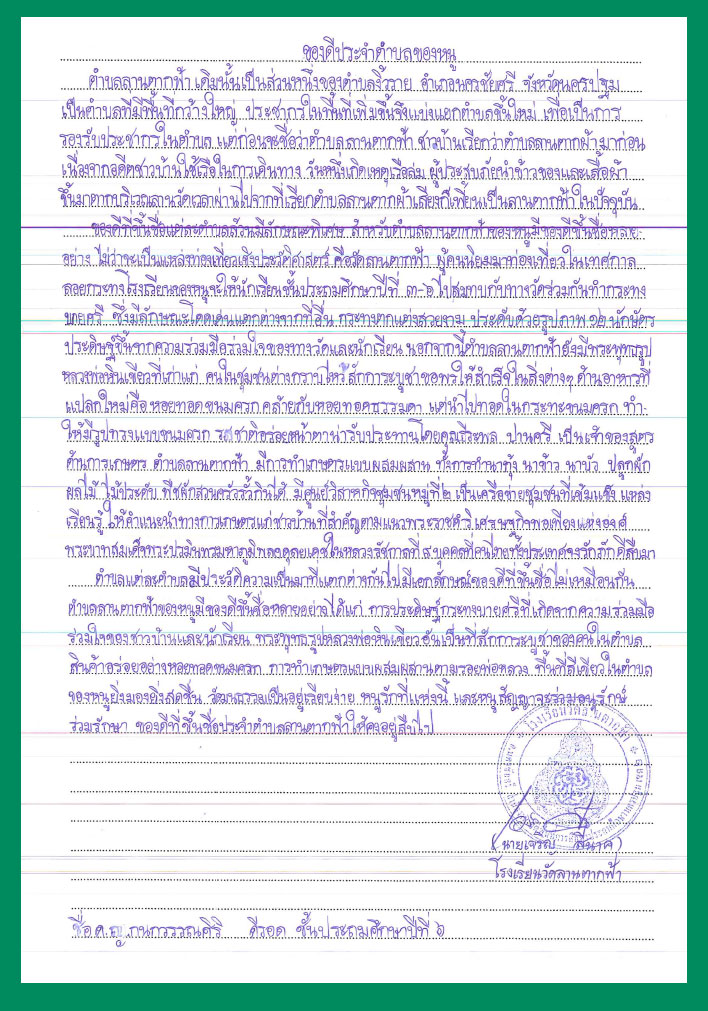 ของดีประจำตำบลของหนู
ตำบลลานตากฟ้า เดิมนั้นเป็นส่วนหนึ่งของตำบลงิ้วราย อำเภอนครชัยศรี จังหวัดนครปฐม
เป็นตำบลที่มีพื้นที่กว้างใหญ่ ประชากรในพื้นที่เพิ่มขึ้นจึงแบ่งแยกตำบลขึ้นใหม่ เพื่อเป็นการ
รองรับประชากรในตำบล แต่ก่อนจะชื่อว่าตำบลลานตากฟ้า ชาวบ้านเรียกว่าตำบลลานตากผ้ามาก่อน
เนื่องจากอดีตชาวบ้านใช้เรือในการเดินทาง วันหนึ่งเกิดเหตุเรือล่ม ผู้ประสบภัยนำข้าวของและเสื้อผ้า
ขึ้นมาตากบริเวณลานวัดเวลาผ่านไปจากที่เรียกตำบลลานตากผ้าเสียงก็เพี้ยนเป็นลานตากฟ้าในปัจจุบัน
ของดีที่ขึ้นชื่อแต่ละตำบลล้วนมีลักษณะพิเศษ สำหรับตำบลลานตากฟ้าของหนูมีของดีขึ้นชื่อหลาย
อย่าง ไม่ว่าจะเป็นแหล่งท่องเที่ยวเชิงประวัติศาสตร์ คือวัดลานตากฟ้า ผู้คนนิยมมาท่องเที่ยวในเทศกาล
ลอยกระทงโรงเรียนของหนูจะให้นักเรียนชั้นประถมศึกษาปีที่ ๓-๖ ไปสมทบกับทางวัดร่วมกันทำกระทง
บายศรี ซึ่งมีลักษณะโดดเด่นแตกต่างจากที่อื่น กระทงตกแต่งสวยงาม ประดับด้วยรูปภาพ ๑๒ นักษัตร
ประดิษฐ์ขึ้นจากความร่วมมือร่วมใจของทางวัดและนักเรียน นอกจากนี้ตำบลลานตากฟ้ายังมีพระพุทธรูป
หลวงพ่อหินเขียวที่เก่าแก่ คนในชุมชนต่างกราบไหว้สักการะบูชาขอพรให้สำเร็จในสิ่งต่างๆ ด้านอาหารที่
แปลกใหม่คือ หอยทอดขนมครก คล้ายกับหอยทอดธรรมดา แต่นำไปทอดในกระทะขนมครก ทำ
ให้มีรูปทรงแบบขนมครก รสชาติอร่อยหน้าตาน่ารับประทานโดยคุณธีระพล ปานศรี เป็นเจ้าของสูตร
ด้านการเกษตร ตำบลลานตากฟ้า มีการทำเกษตรแบบผสมผสาน ทั้งการทำนากุ้ง นาข้าว นาบัว ปลูกผัก
ผลไม้ ไม้ประดับ พืชผักสวนครัวรั้วกินได้ มีศูนย์วิสาหกิจชุมชนหมู่ที่๒ เป็นเครือข่ายชุมชนที่เข้มแข็ง แหล่ง
เรียนรู้ ให้คำแนะนำทางการเกษตรแก่ชาวบ้านที่สำคัญตามแนวพระราชดำริ เศรษฐกิจพอเพียงแห่งองค์
พระบาทสมเด็จพระปรมินทรมหาภูมิพลอดุลยเดชในหลวงรัชกาลที่ ๙ บุคคลที่คนไทยทั้งประเทศจงรักภักดีสืบมา
ตำบลแต่ละตำบลมีประวัติความเป็นมาที่แตกต่างกันไปมีเอกลักษณ์ของดีที่ขึ้นชื่อไม่เหมือนกัน
ตำบลลานตากฟ้าของหนูมีของดีขึ้นชื่อหลายอย่างได้แก่ การประดิษฐ์กระทงบายศรีที่เกิดจากความร่วมมือ
ร่วมใจของชาวบ้านและนักเรียน พระพุทธรูปหลวงพ่อหินเขียวอันเป็นที่สักการะบูชาของคนในตำบล
สินค้าอร่อยอย่างหอยทอดขนมครก การทำเกษตรแบบผสมผสานตามรอยพ่อหลวง พื้นที่สีเขียวในตำบล
ของหนูยิ่งมองยิ่งสดชื่น วัฒนธรรมเป็นอยู่เรียบง่าย หนูรักที่แห่งนี้ และหนูสัญญาจะร่วมอนุรักษ์
ร่วมรักษา ของดีที่ขึ้นชื่อประจำตำบลลานตากฟ้าให้คงอยู่สืบไป
โรงเรียนวัดลานตากฟ้า
(นายเจริญ สีนาค)
โรงเรียนวัดลานตากฟ้า
ชื่อ ด.ญ. กนกวรรณศิริ ดีรอด ชั้นประถมศึกษาปีที่ ๖